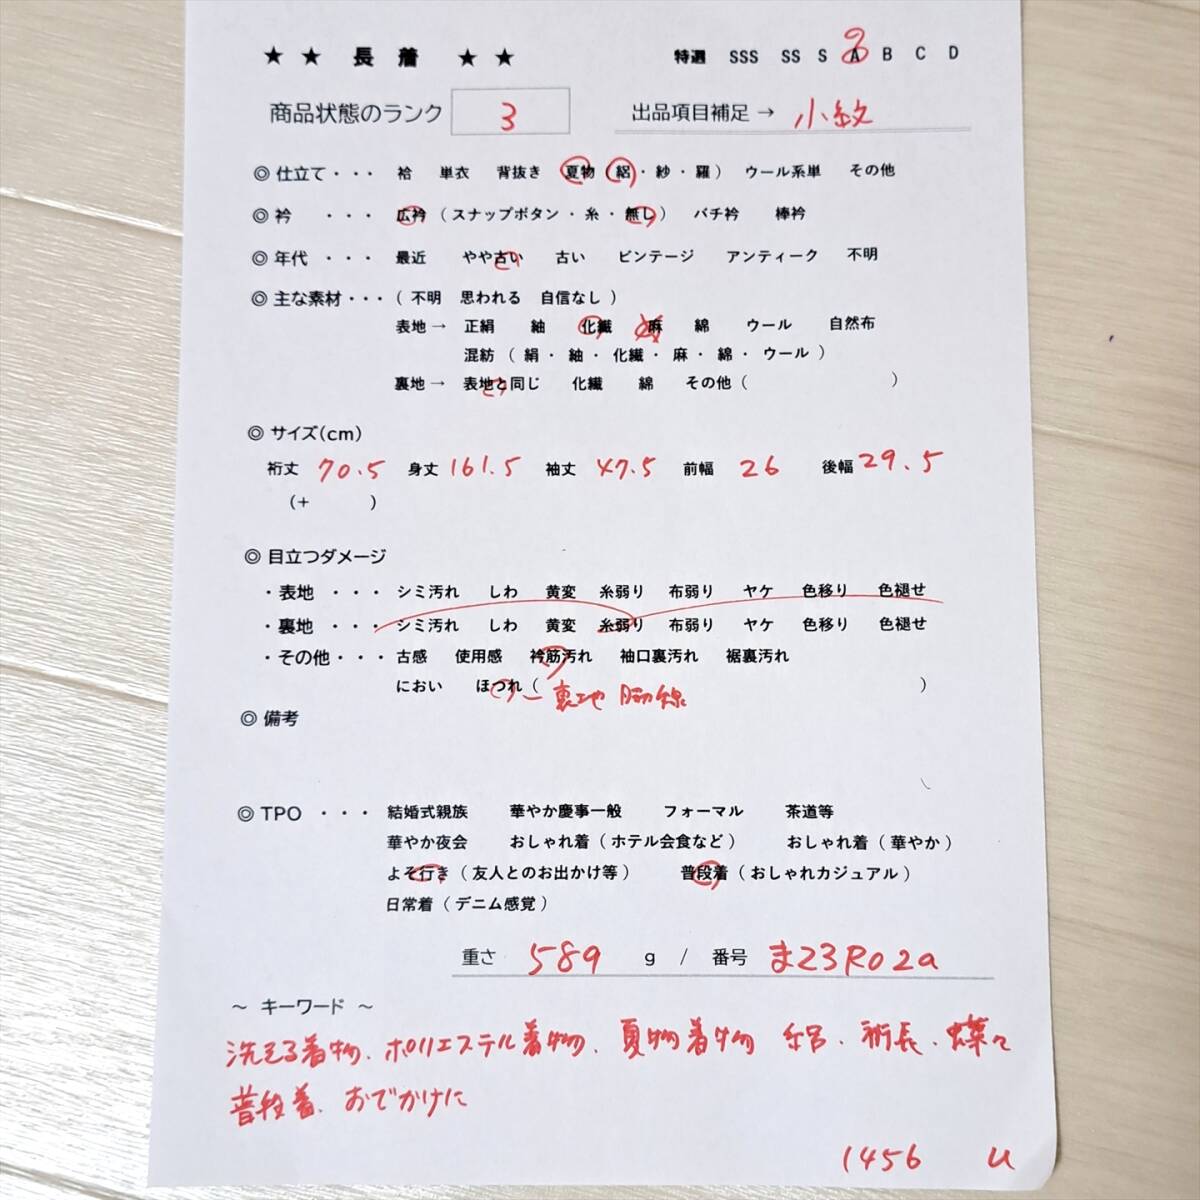 ★ ★ 長 着 ★ ★ 特選 SSS SS S A B C D
商品状態のランク 3 出品項目補足 → 小紋
◎ 仕立て ・・・ 袷 単衣 背抜き 夏物 ( 絽 ・ 紗 ・ 羅 ) ウール系単 その他
◎ 衿 ・・・ 広衿 ( スナップボタン ・ 糸 ・ 無し ) バチ衿 棒衿
◎ 年代 ・・・ 最近 やや古い 古い ビンテージ アンティーク 不明
◎ 主な素材 ・・・ ( 不明 思われる 自信なし )
表地 → 正絹 紬 化繊 麻 綿 ウール 自然布
混紡 ( 絹 ・ 紬 ・ 化繊 ・ 麻 ・ 綿 ・ ウール )
裏地 → 表地と同じ 化繊 綿 その他 ( )
◎ サイズ(cm)
裄丈 70.5 身丈 161.5 袖丈 47.5 前幅 26 後幅 29.5
(+ )
◎ 目立つダメージ
・ 表地 ・・・ シミ汚れ しわ 黄変 糸弱り 布弱り ヤケ 色移り 色褪せ
・ 裏地 ・・・ シミ汚れ しわ 黄変 糸弱り 布弱り ヤケ 色移り 色褪せ
・ その他 ・・・ 古感 使用感 衿筋汚れ 袖口裏汚れ 裾裏汚れ
におい ほつれ ( 裏地 脇線 )
◎ 備考
◎ TPO ・・・ 結婚式親族 華やか慶事一般 フォーマル 茶道等
華やか夜会 おしゃれ着 ( ホテル会食など ) おしゃれ着 ( 華やか )
よそ行き ( 友人とのお出かけ等 ) 普段着 ( おしゃれカジュアル )
日常着 ( デニム感覚 )
重さ 589 g / 番号 ま23R02a
～ キーワード ～
洗える着物、ポリエステル着物、夏物着物 絽、裄長、蝶々
普段着、おでかけに
1456 U